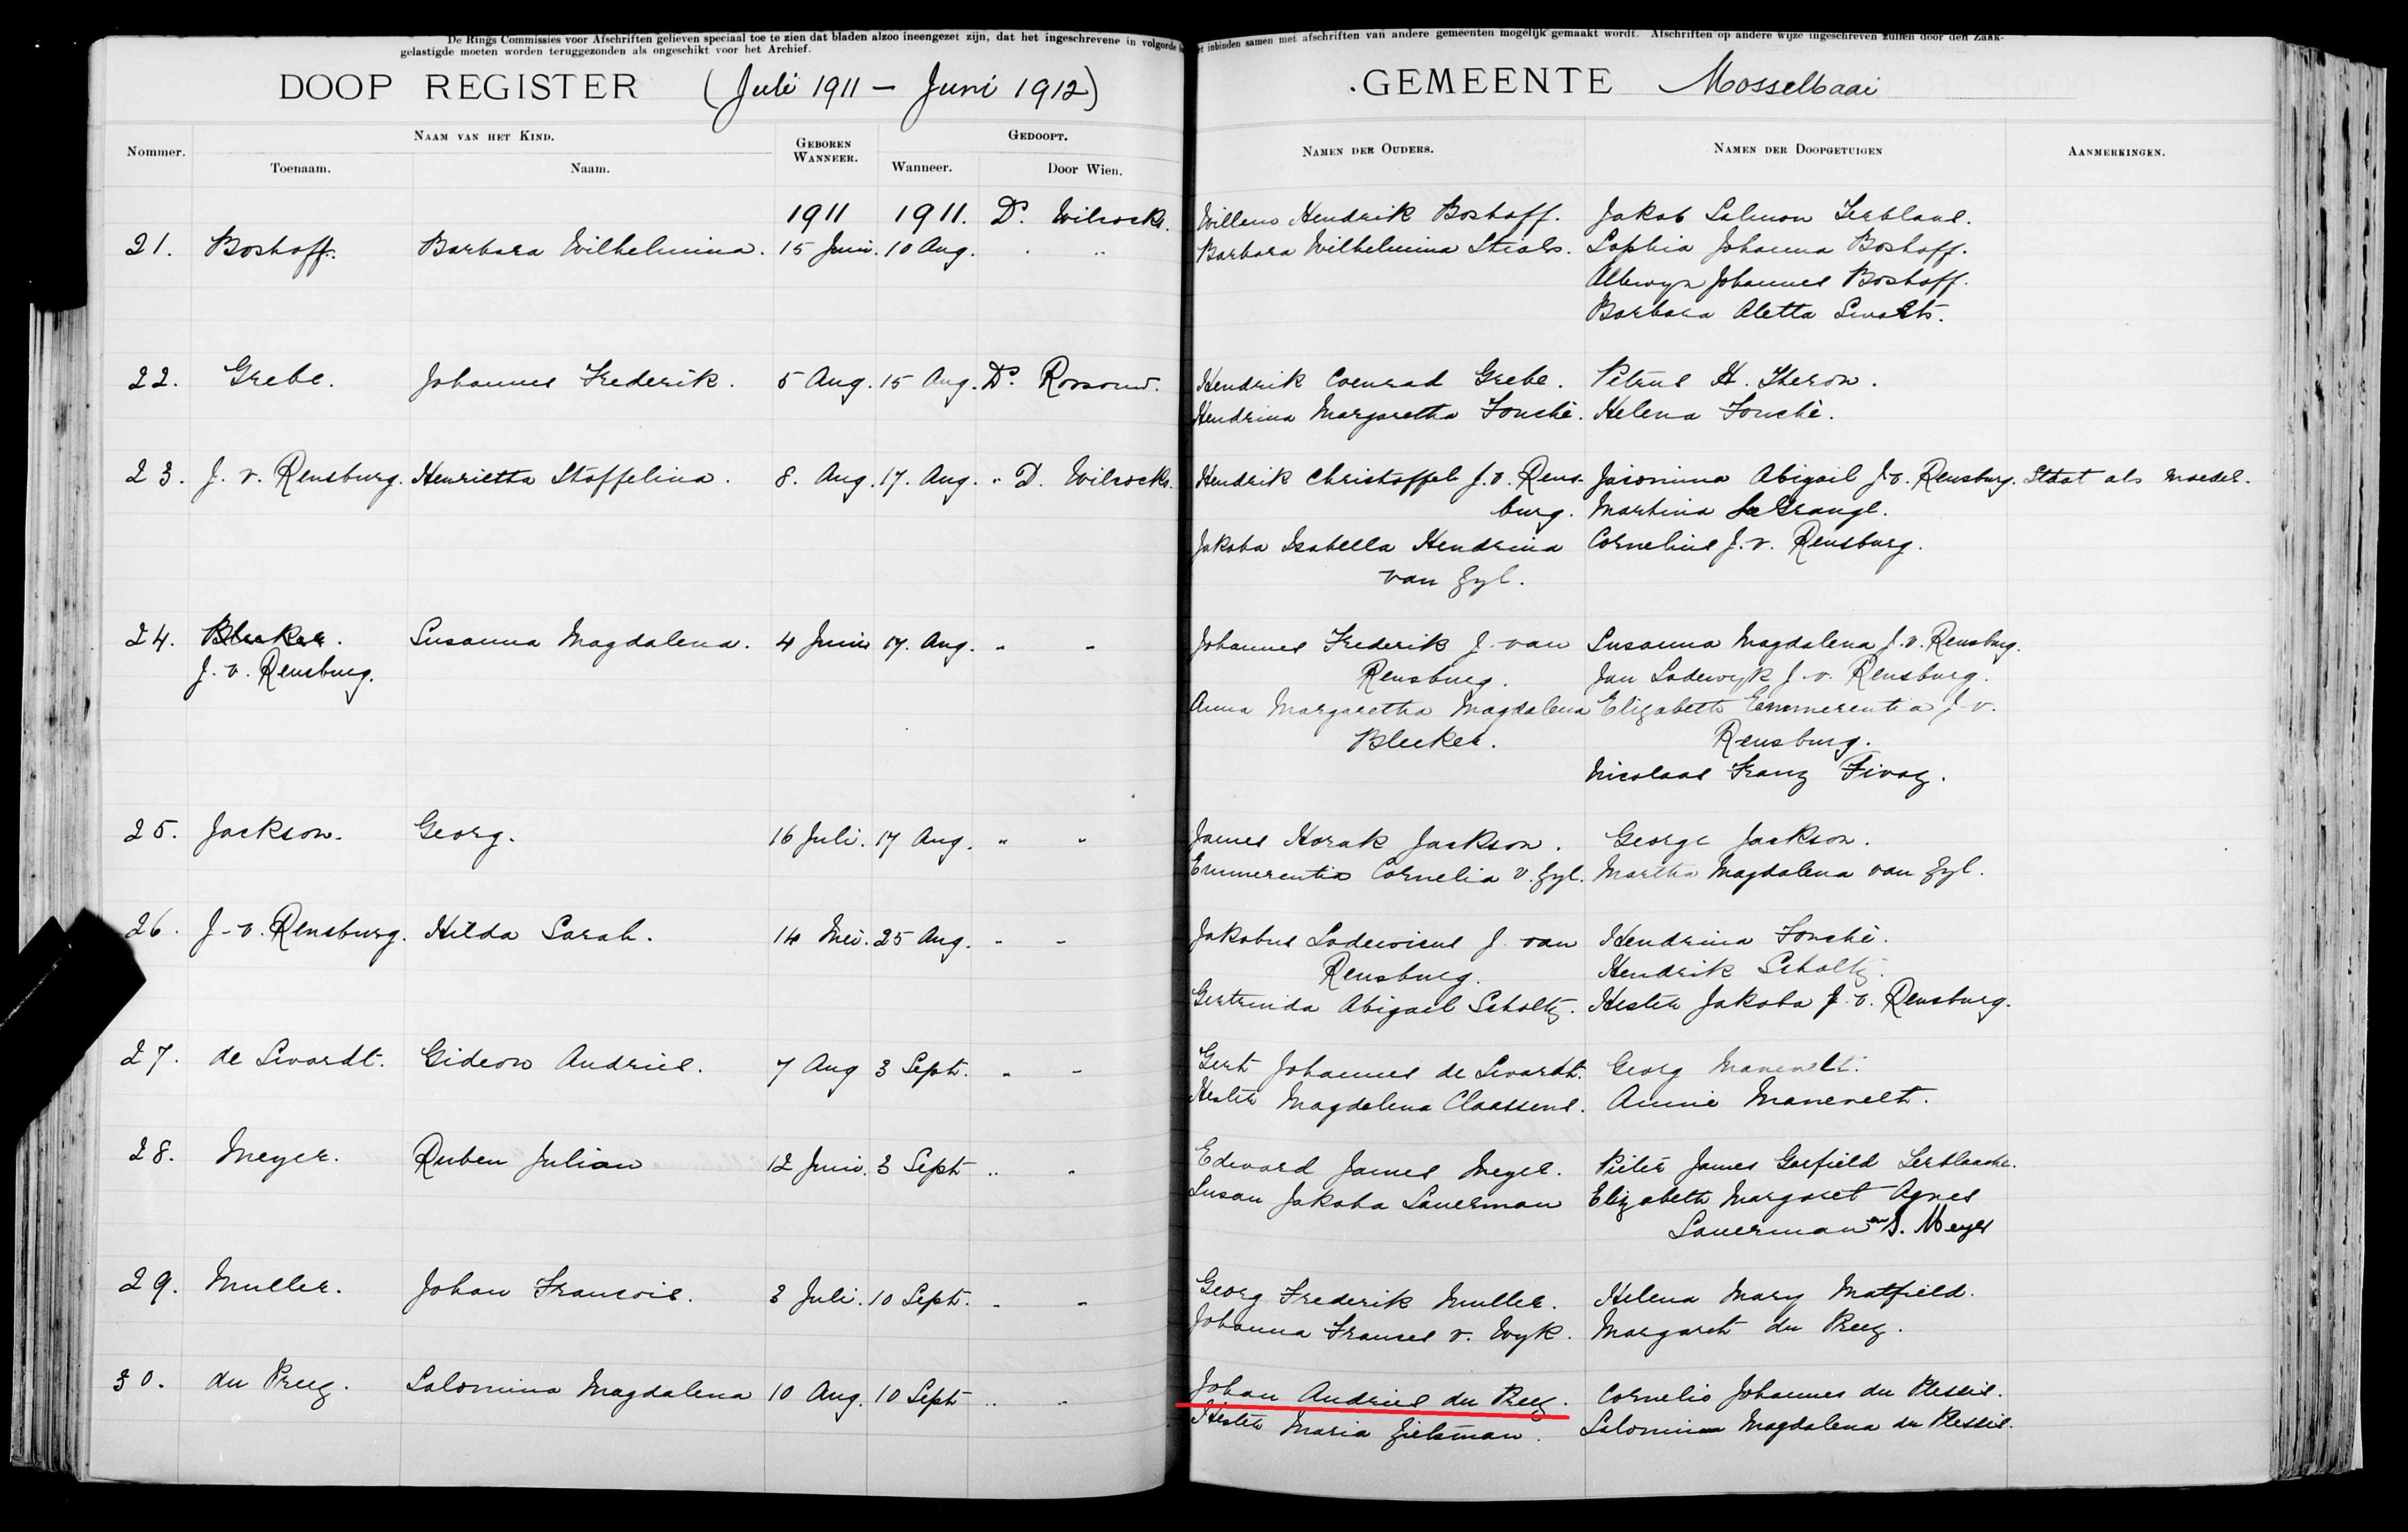 De Rings Commissies voor Afschriften gelieven speciaal toe te zien dat bladen alzoo ineengezet zijn, dat het ingeschrevene in volgorde
gelastigde moeten worden teruggezonden als ongeschikt voor het Archief.
DOOP REGISTER (Juli 1911 — Juni 1912)
Nommer.
NAAM VAN HET KIND.
Toenaam.
Naam.
GEBOREN WANNEER.
GEDOOPT.
Wanneer.
Door Wien.
inbinden samen met afschriften van andere gemeenten mogelijk gemaakt wordt. Afschriften op andere wijze ingeschreven zullen door den Zaak-
GEMEENTE Mosselbaai
NAMEN DER OUDERS.
NAMEN DER DOOPGETUIGEN
AANMERKINGEN.
1911 1911. Ds. Wilcocks. Willem Hendrik Boshoff. Jakob Salmon Terblans.
21. Boshoff. Barbara Wilhelmina. 15 Juni. 10 Aug. " " Barbara Wilhelmina Stials. Sophia Johanna Boshoff.
Albewyn Johannes Boshoff.
Barbara Aletta Swarts.
22. Grebe. Johannes Frederik. 5 Aug. 15 Aug. Ds. Rossouw. Hendrik Coenrad Grebe. Petrus H. Theron.
Hendrina Margaretha Fouché. Helena Fouché.
23. J. v. Rensburg. Henrietta Stoffelina. 8. Aug. 17. Aug. " D. Wilcocks. Hendrik Christoffel J. v. Rens- Jacomina Abigail J. v. Rensburg. Staat als moeder.
burg. Martina La Grange.
Jakoba Isabella Hendrina Cornelius J. v. Rensburg.
van Zyl.
24. Bleeker. Susanna Magdalena. 4 Junie 17. Aug. " " Johannes Frederik J. van Susanna Magdalena J. v. Rensburg.
J. v. Rensburg. Rensburg. Jan Lodewyk J. v. Rensburg.
Anna Margaretha Magdalena Elizabeth Emmerentia J. v.
Bleeker. Rensburg.
Nicolaas Franz Fivaz.
25. Jackson. Georg. 16 Juli. 17 Aug. " " James Horak Jackson. George Jackson.
Emmerentia Cornelia v. Zyl. Martha Magdalena van Zyl.
26. J. v. Rensburg. Hilda Sarah. 14 Mei. 25 Aug. " " Jakobus Lodewicus J. van Hendrina Fouché.
Rensburg. Hendrik Scholtz.
Gertruida Abigael Scholtz. Hester Jakoba J. v. Rensburg.
27. de Swardt. Gideon Andries. 7 Aug 3 Sept. " " Gert Johannes de Swardt. Georg Manevelt.
Hester Magdalena Claassens. Annie Manevelt.
28. Meyer. Ruben Julian 12 Juni. 3 Sept " " Edward James Meyer. Pieter James Garfield Terblanche.
Susan Jakoba Sauerman Elizabeth Margaret Agnes
Sauerman en S. Meyer
29. Muller. Johan Francois. 3 Juli. 10 Sept. " " Georg Frederik Muller. Helena Mary Matfield.
Johanna Frances v. Wyk. Margaret du Preez.
30. du Preez. Salomina Magdalena 10 Aug. 10 Sept " " Johan Andries du Preez. Cornelis Johannes du Plessis.
Hester Maria Zietsman. Salomina Magdalena du Plessis.